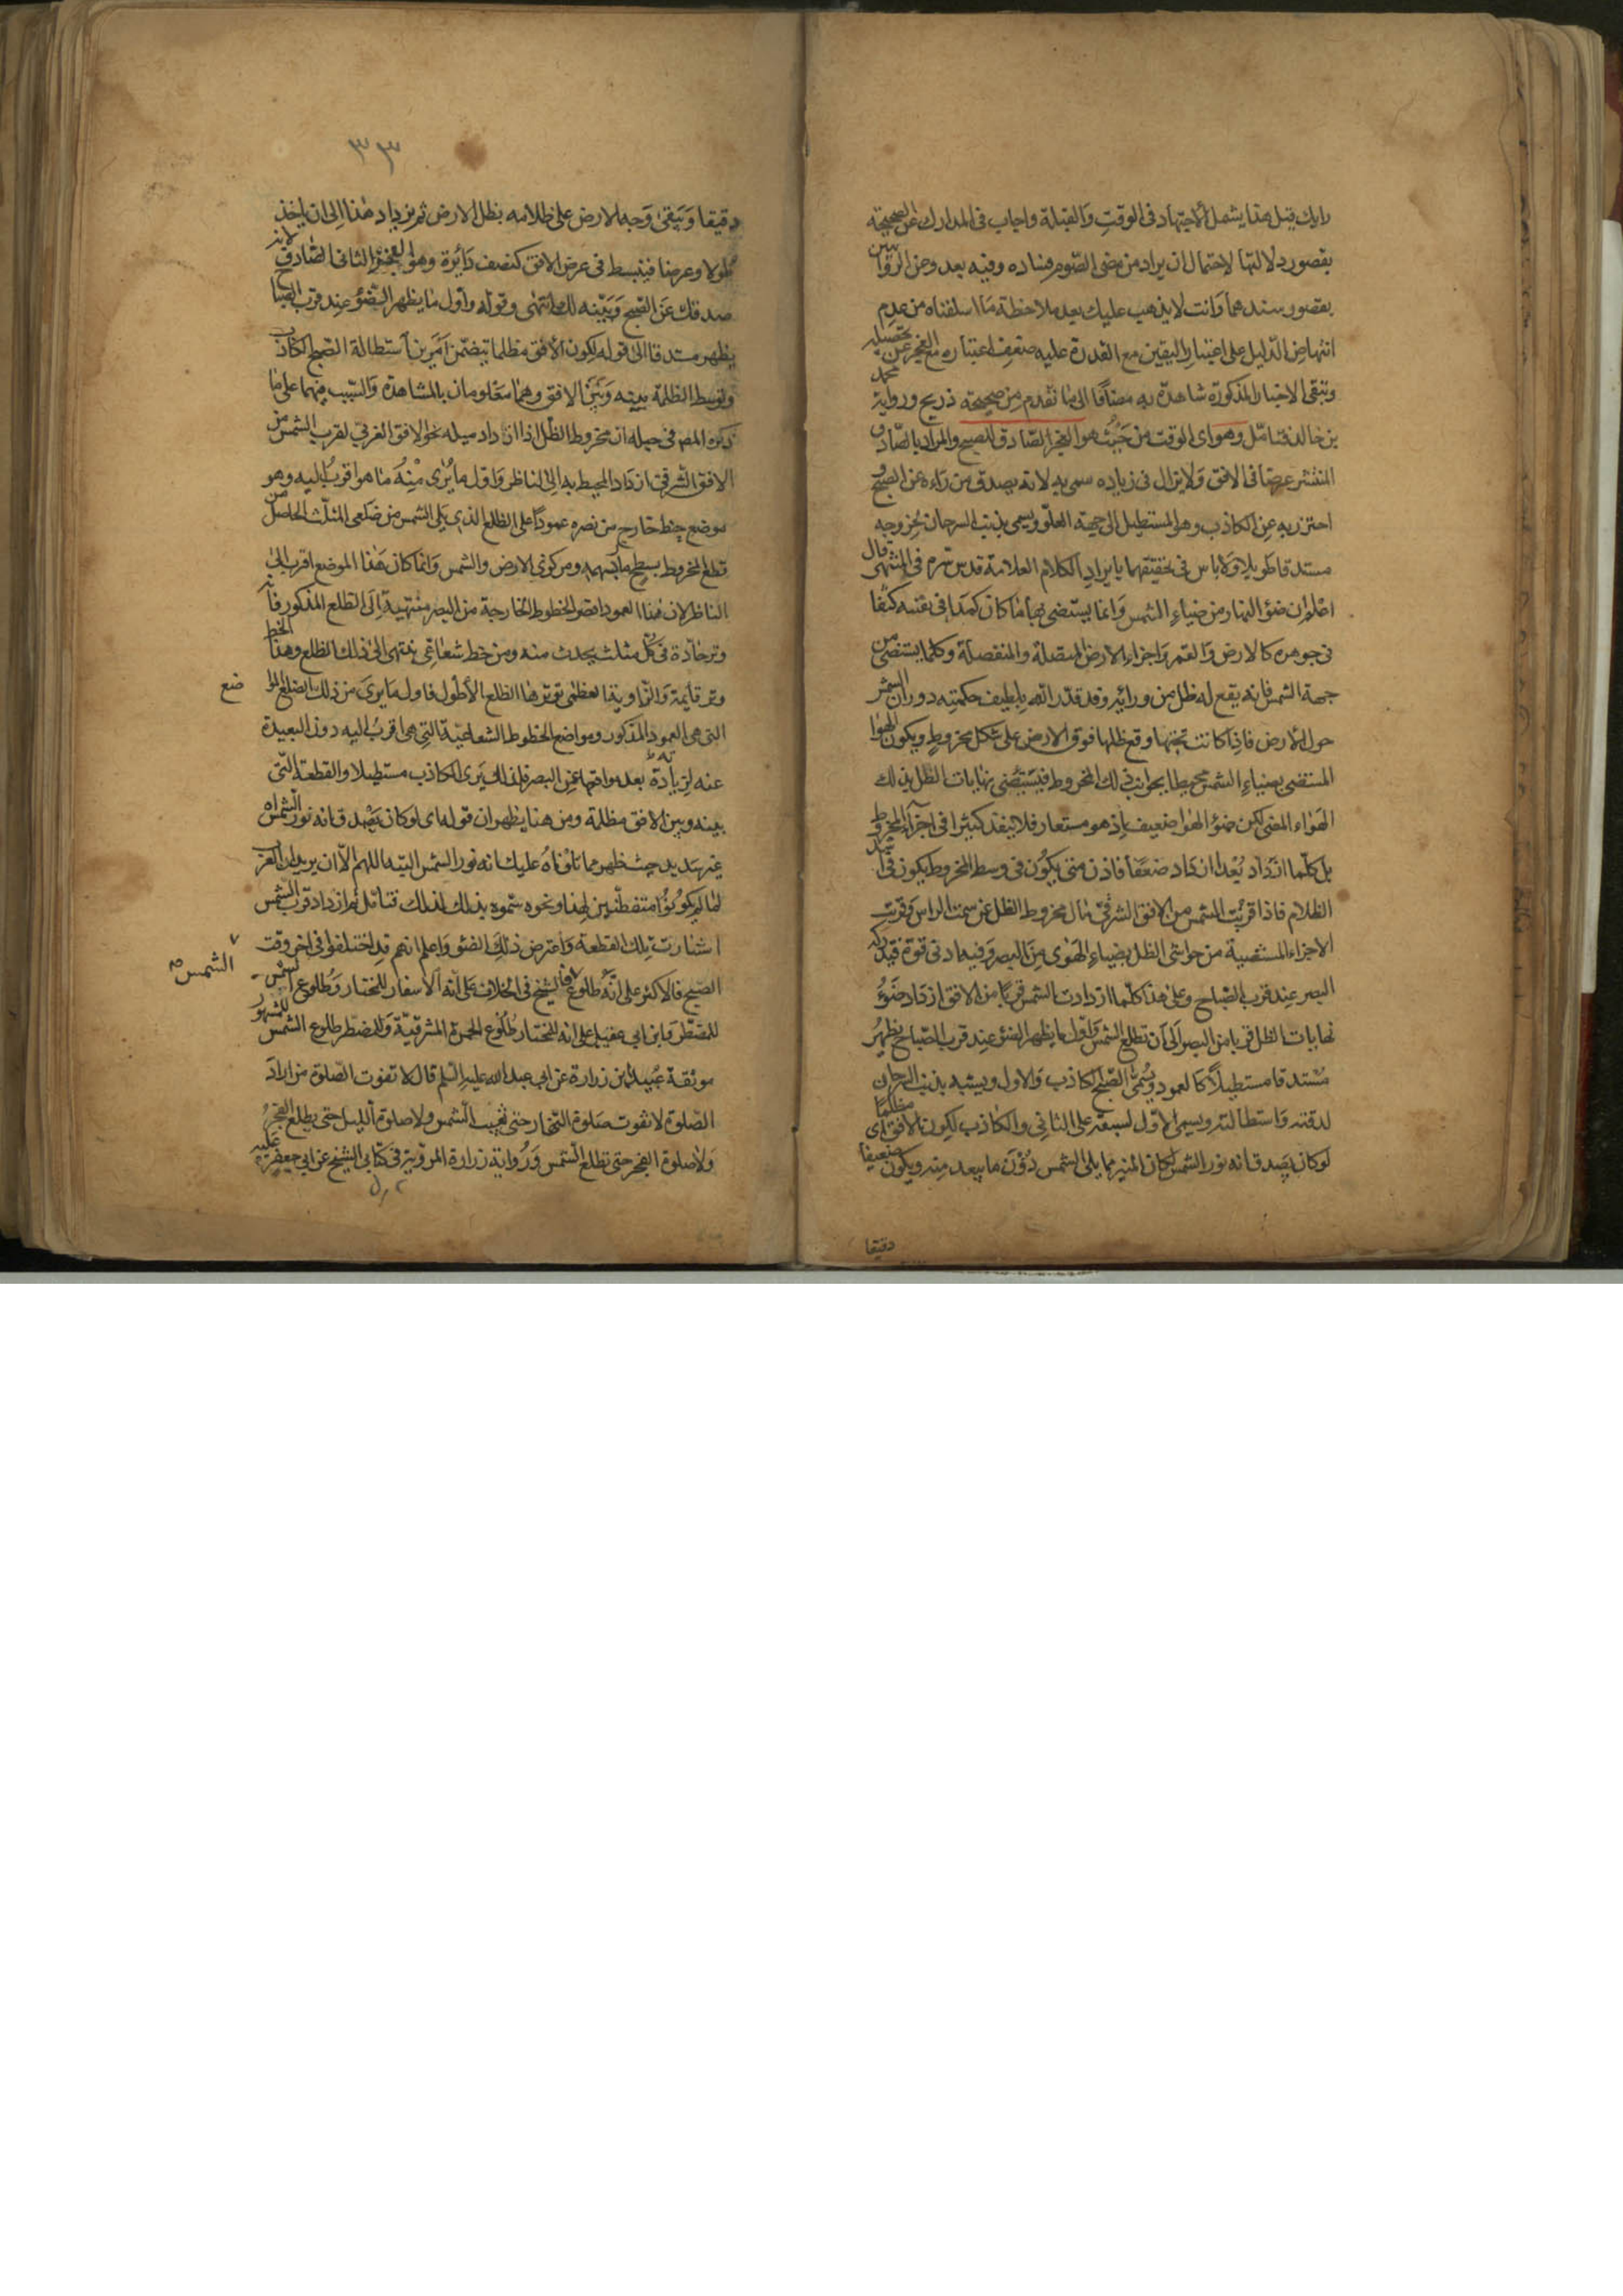 رايك قيل هذا يشمل الاجتهاد فى الوقت والقبلة واجاب فى المدارك عن الصحيحة
بقصور دلالتها لاحتمال ان يراد من مضى الصوم فساده وفيه بعد وعن الروايتين
بقصور سندهما وانت لا يذهب عليك بعد ملاحظة ما اسلفناه من عدم
انتهاض الدليل على اعتبار اليقين مع القدرة عليه ضعف اعتباره مع العجز عن تحصيله
وتبقى الاخبار المذكورة شاهدة به مضافا الى ما تقدم من صحيحة ذريح ورواية محمد
بن خالد فتامل وهو اى الوقت من حيث هو الفجر الصادق للصبح والمراد بالصادق
المنتشر عرضا فى الافق ولا يزال فى زيادة سمى به لانه يصدق من راءه عن الصبح و
احترز به عن الكاذب وهو المستطيل الى جهة العلو ويسمى بذنب السرحان لخروجه
مستدقا طويلا ولا باس فى تحقيقهما بايراد الكلام العلامة قدس سره فى المنتهى قال
اعلم ان ضوء النهار من ضياء الشمس وانما يستضى بها ما كان كمدا فى نفسه كثيفا
فى جوهره كالارض والقمر واجزاء الارض المتصلة والمنفصلة وكلما يستضى من
جهة الشمس فانه يقع له ظل من ورائه وقد قدر الله بلطيف حكمته دوران الشمس
حول الارض فاذا كانت تحتها وقع ظلها فوق الارض على شكل مخروط ويكون الهوا
المستضى بضياء الشمس محيطا بجوانب ذلك المخروط فيستضى نهايات الظل بذلك
الهواء المضى لكن ضوء الهوا ضعيف اذ هو مستعار فلا ينفذ كثيرا فى اجزاء المخروط
بل كلما ازداد بعدا ازداد ضعفا فاذن متى يكون فى وسط المخروط يكون فى اشد
الظلام فاذا قربت الشمس من الافق الشرقى مال مخروط الظل عن سمت الراس وقربت
الاجزاء المستضيئة من حواشى الظل بضياء الهوى من البصر وفيه ادنى قوة فيدركه
البصر عند قرب الصباح وعلى هذا كلما ازدادت الشمس قربا من الافق ازداد ضوء
نهايات الظل قربا من البصر الى ان تطلع الشمس واول ما يظهر الضوء عند قرب الصباح يظهر
مستدقا مستطيلا كالعمود ويسمى الصبح الكاذب والاول ويشبه بذنب السرحان
لدقته واستطالته ويسمى الاول لسبقه على الثانى والكاذب لكون الافق مظلما اى
لو كان يصدق انه نور الشمس لكان المنير مما يلى الشمس دون ما يبعد منه ويكون ضعيفا
دقيقا
٣٣
دقيقا ويبقى وجه الارض على ظلامه بظل الارض ثم يزداد هذا الى ان ياخذ
طولا وعرضا فينبسط فى عرض الافق كنصف دائرة وهو الفجر الثانى الصادق لانه
صدقك عن الصبح وبينه لك انتهى وقوله واول ما يظهر الضوء عند قرب الصباح
يظهر مستدقا الى قوله لكون الافق مظلما يتضمن امرين استطالة الصبح الكاذب
وتوسط الظلمة بينه وبين الافق وهما معلومان بالمشاهدة والسبب فيهما على ما
ذكره المص فى حبله ان مخروط الظل اذا ازداد ميله نحو الافق الغربى لقرب الشمس من
الافق الشرقى ازداد المحيط به الى الناظر واول ما يرى منه ما هو اقرب اليه وهو
موضع خط خارج من بصره عمودا على الظلع الذى يلى الشمس من ضلعى المثلث الحاصل من
قطع المخروط بسطح مار بسهمه ومركزى الارض والشمس وانما كان هذا الموضع اقرب الى
الناظر لان هذا العمود اقصر الخطوط الخارجة من البصر منتهية الى الظلع المذكور فانه
وتر حادة فى كل مثلث يحدث منه ومن خط شعاعى ينتهى الى ذلك الظلع وهذا الخط
وتر قايمة والزاوية العظمى توترها الظلع الاطول فاول ما يرى من ذلك الضلع
ضع
التى هى العمود المذكور ومواضع الخطوط الشعاعية التى هى اقرب اليه دون البعيدة
عنه لزيادة بعد مواقعها عن البصر فلذلك يرى الكاذب مستطيلا والقطعة التى
بينه وبين الافق مظلمة ومن هنا يظهر ان قوله اى لو كان يصدق انه نور الشمس
غير سديد حيث ظهر مما تلوناه عليك انه نور الشمس البته اللهم الا ان يريد ان العرب
لما لم يكونوا متفطنين لهذا ونحوه سموه بذلك لذلك فتامل ثم ازداد قرب الشمس
استنارت تلك القطعة واعترض ذلك الضوء واعلم انهم قد اختلفوا فى اخر وقت
الصبح فالاكثر على انه طلوع الشمس والشيخ فى الخلاف على انه الاسفار للمختار وطلوع
الشمس صح
للمضطر وابن ابى عقيل على انه للمختار طلوع الحمرة المشرقية وللمضطر طلوع الشمس للمشهور
موثقة عبيد بن زرارة عن ابى عبد الله عليه السلم قال لا تفوت الصلوة من اراد
الصلوة لا تفوت صلوة النهار حتى تغيب الشمس ولا صلوة الليل حتى يطلع الفجر
ولا صلوة الفجر حتى تطلع الشمس ورواية زرارة المروية فى كتابى الشيخ عن ابى جعفر عليه